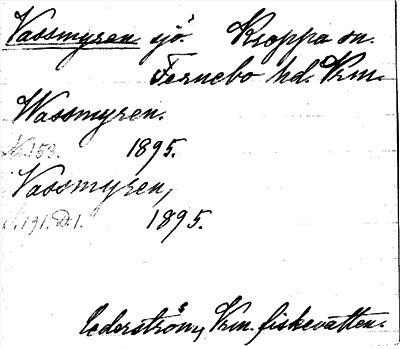 Vassmyren sjö Kroppa sn.
Fernebo hd. Vrm.
Wassmyren.
N. 153. 1895.
Vassmyren,
N. 191. D. 1. 1895.
Cederström, Vrm. fiskevatten.